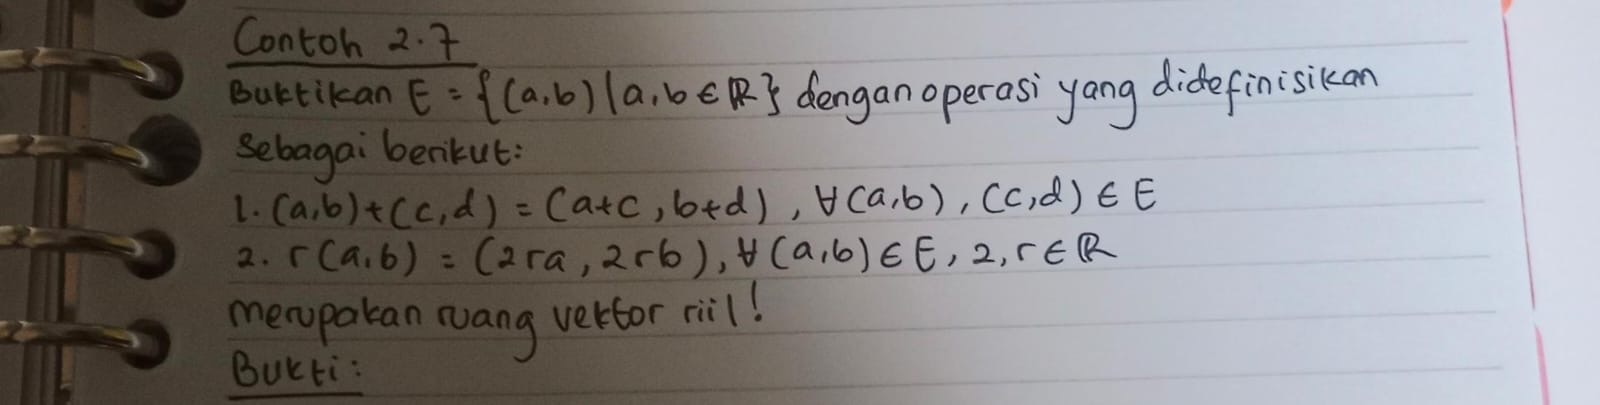 Contoh 2.7
Buktikan E = {(a,b) | a,b ∈ ℝ} dengan operasi yang didefinisikan
sebagai berikut:
1. (a,b)+(c,d) = (a+c, b+d), ∀(a,b), (c,d) ∈ E
2. r(a,b) = (2ra, 2rb), ∀(a,b) ∈ E, 2,r ∈ ℝ
merupakan ruang vektor riil!
Bukti: